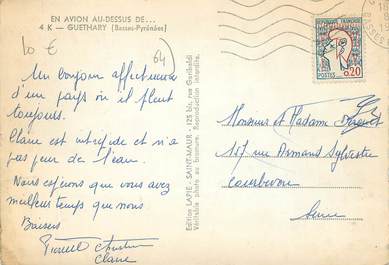 EN AVION AU-DESSUS DE...
4 K — GUETHARY (Basses-Pyrénées)
10 €
64
Un bonjour affectueux
d'un pays où il pleut
toujours.
Claire est intrépide et n'a
pas peur de l'eau.
Nous espérons que vous avez
meilleur temps que nous
Baisers
Claire
Edition LAPIE - SAINT-MAUR - 125 bis, rue Garibaldi
Véritable photo au bromure. Reproduction interdite.
REPUBLIQUE FRANÇAISE
POSTES 0,20
Monsieur et Madame
157 rue Armand Sylvestre
Courbevoie
Seine